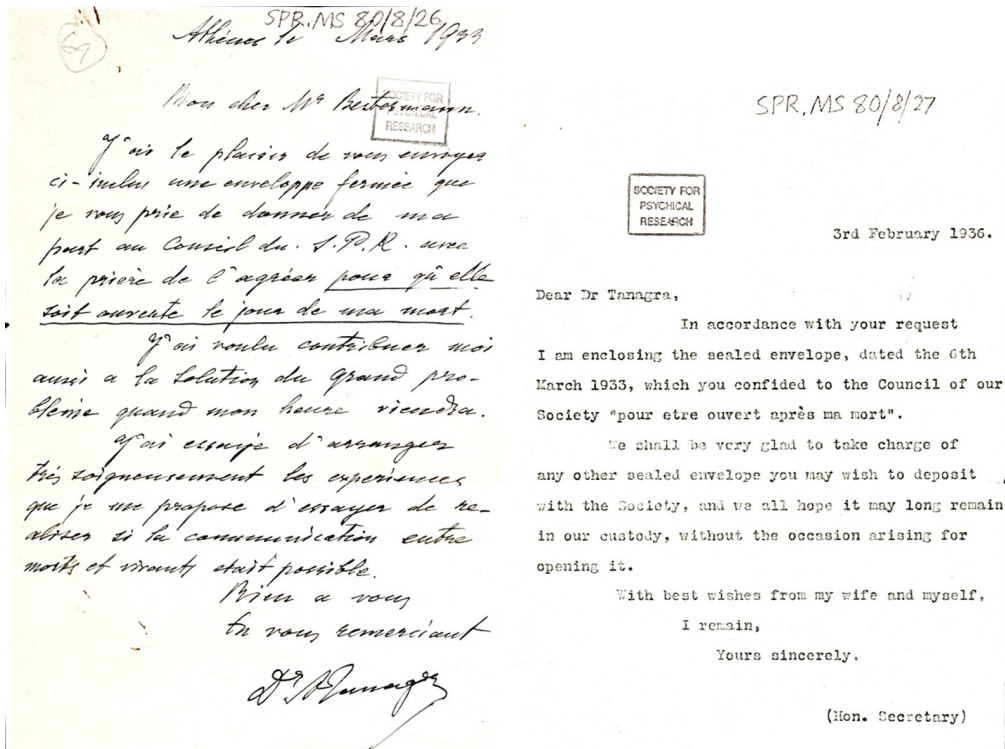 SPR.MS 80/8/26
69
Athènes le Mars 1933
Mon cher Mr Besterman.
SOCIETY FOR
PSYCHICAL
RESEARCH
J'ai le plaisir de vous envoyer
ci-inclus une enveloppe fermée que
je vous prie de donner de ma
part au Conseil du. S.P.R. avec
la prière de l'agréer pour qu'elle
soit ouverte le jour de ma mort.
J'ai voulu contribuer moi
aussi a la solution du grand pro-
blème quand mon heure viendra.
J'ai essaye d'arranger
très soigneusement les experiences
que je me propose d'essayer de re-
aliser si la communication entre
morts et vivants etait possible.
Bien a vous
En vous remerciant
Dr A Tanagra
SPR.MS 80/8/27
SOCIETY FOR
PSYCHICAL
RESEARCH
3rd February 1936.
Dear Dr Tanagra,
In accordance with your request
I am enclosing the sealed envelope, dated the 6th
March 1933, which you confided to the Council of our
Society "pour etre ouvert après ma mort".
We shall be very glad to take charge of
any other sealed envelope you may wish to deposit
with the Society, and we all hope it may long remain
in our custody, without the occasion arising for
opening it.
With best wishes from my wife and myself,
I remain,
Yours sincerely,
(Hon. Secretary)